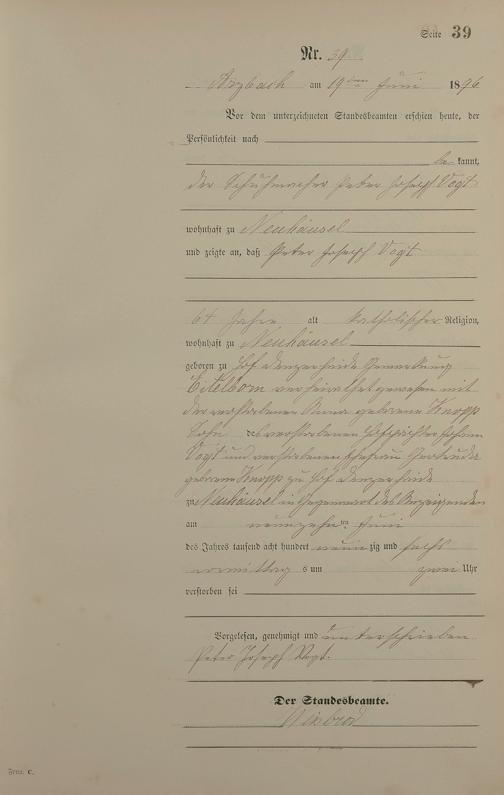 Seite 39
Nr. 39
Arzbach am 19ten Juni 1896
Vor dem unterzeichneten Standesbeamten erschien heute, der
Persönlichkeit nach
be kannt,
der Schuhmacher Peter Joseph Vogt
wohnhaft zu Neuhäusel
und zeigte an, daß Peter Joseph Vogt
64 Jahre alt katholischer Religion,
wohnhaft zu Neuhäusel
geboren zu Hof Denzerheide Gemarkung
Eitelborn verheirathet gewesen mit
der verstorbenen Anna geborene Knopp
Sohn des verstorbenen Hofpächter Johann
Vogt und verstorbenen Ehefrau Gertruda
geborene Knopp zu Hof Denzerheide
zu Neuhäusel in Gegenwart des Anzeigenden
am neunzehnten Juni
des Jahres tausend acht hundert neunzig und sechs
vormittags um zwei Uhr
verstorben sei
Vorgelesen, genehmigt und unterschrieben
Peter Joseph Vogt.
Der Standesbeamte.
Form. C.